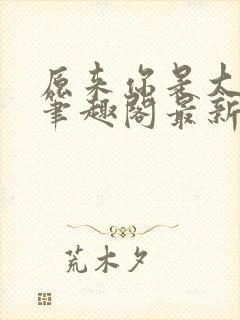 原来你是太
笔趣阁最新
荒木夕